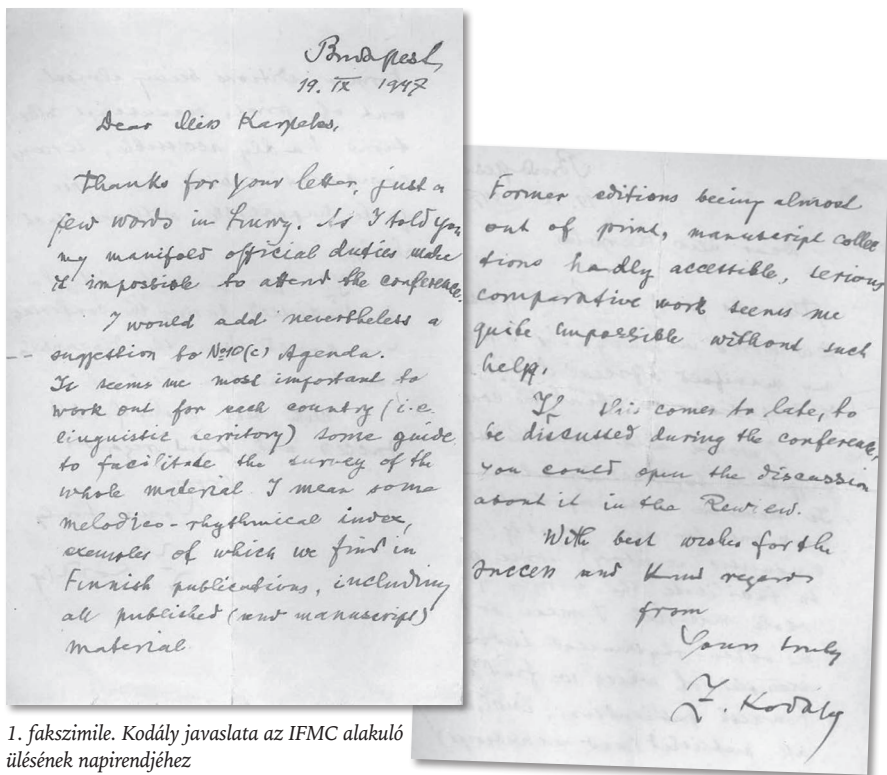 Budapest,
19. IX 1947
Dear Miss Karpeles,
Thanks for your letter, just a
few words in hurry. As I told you
my manifold official duties make
it impossible to attend the conference.
I would add nevertheless a
suggestion to No10(c) Agenda.
It seems me most important to
work out for each country (i.e.
linguistic territory) some guide
to facilitate the survey of the
whole material. I mean some
melodico-rhythmical index,
exemples of which we find in
Finnish publications, including
all published (and manuscript)
material.
Former editions being almost
out of print, manuscript collec
tions hardly accessible, serious
comparative work seems me
quite impossible without such
help.
If this comes to late, to
be discussed during the conference,
you could open the discussion
about it in the Rewiew.
With best wishes for the
success and kind regards
from
Yours truly
Z. Kodály
1. fakszimile. Kodály javaslata az IFMC alakuló
ülésének napirendjéhez